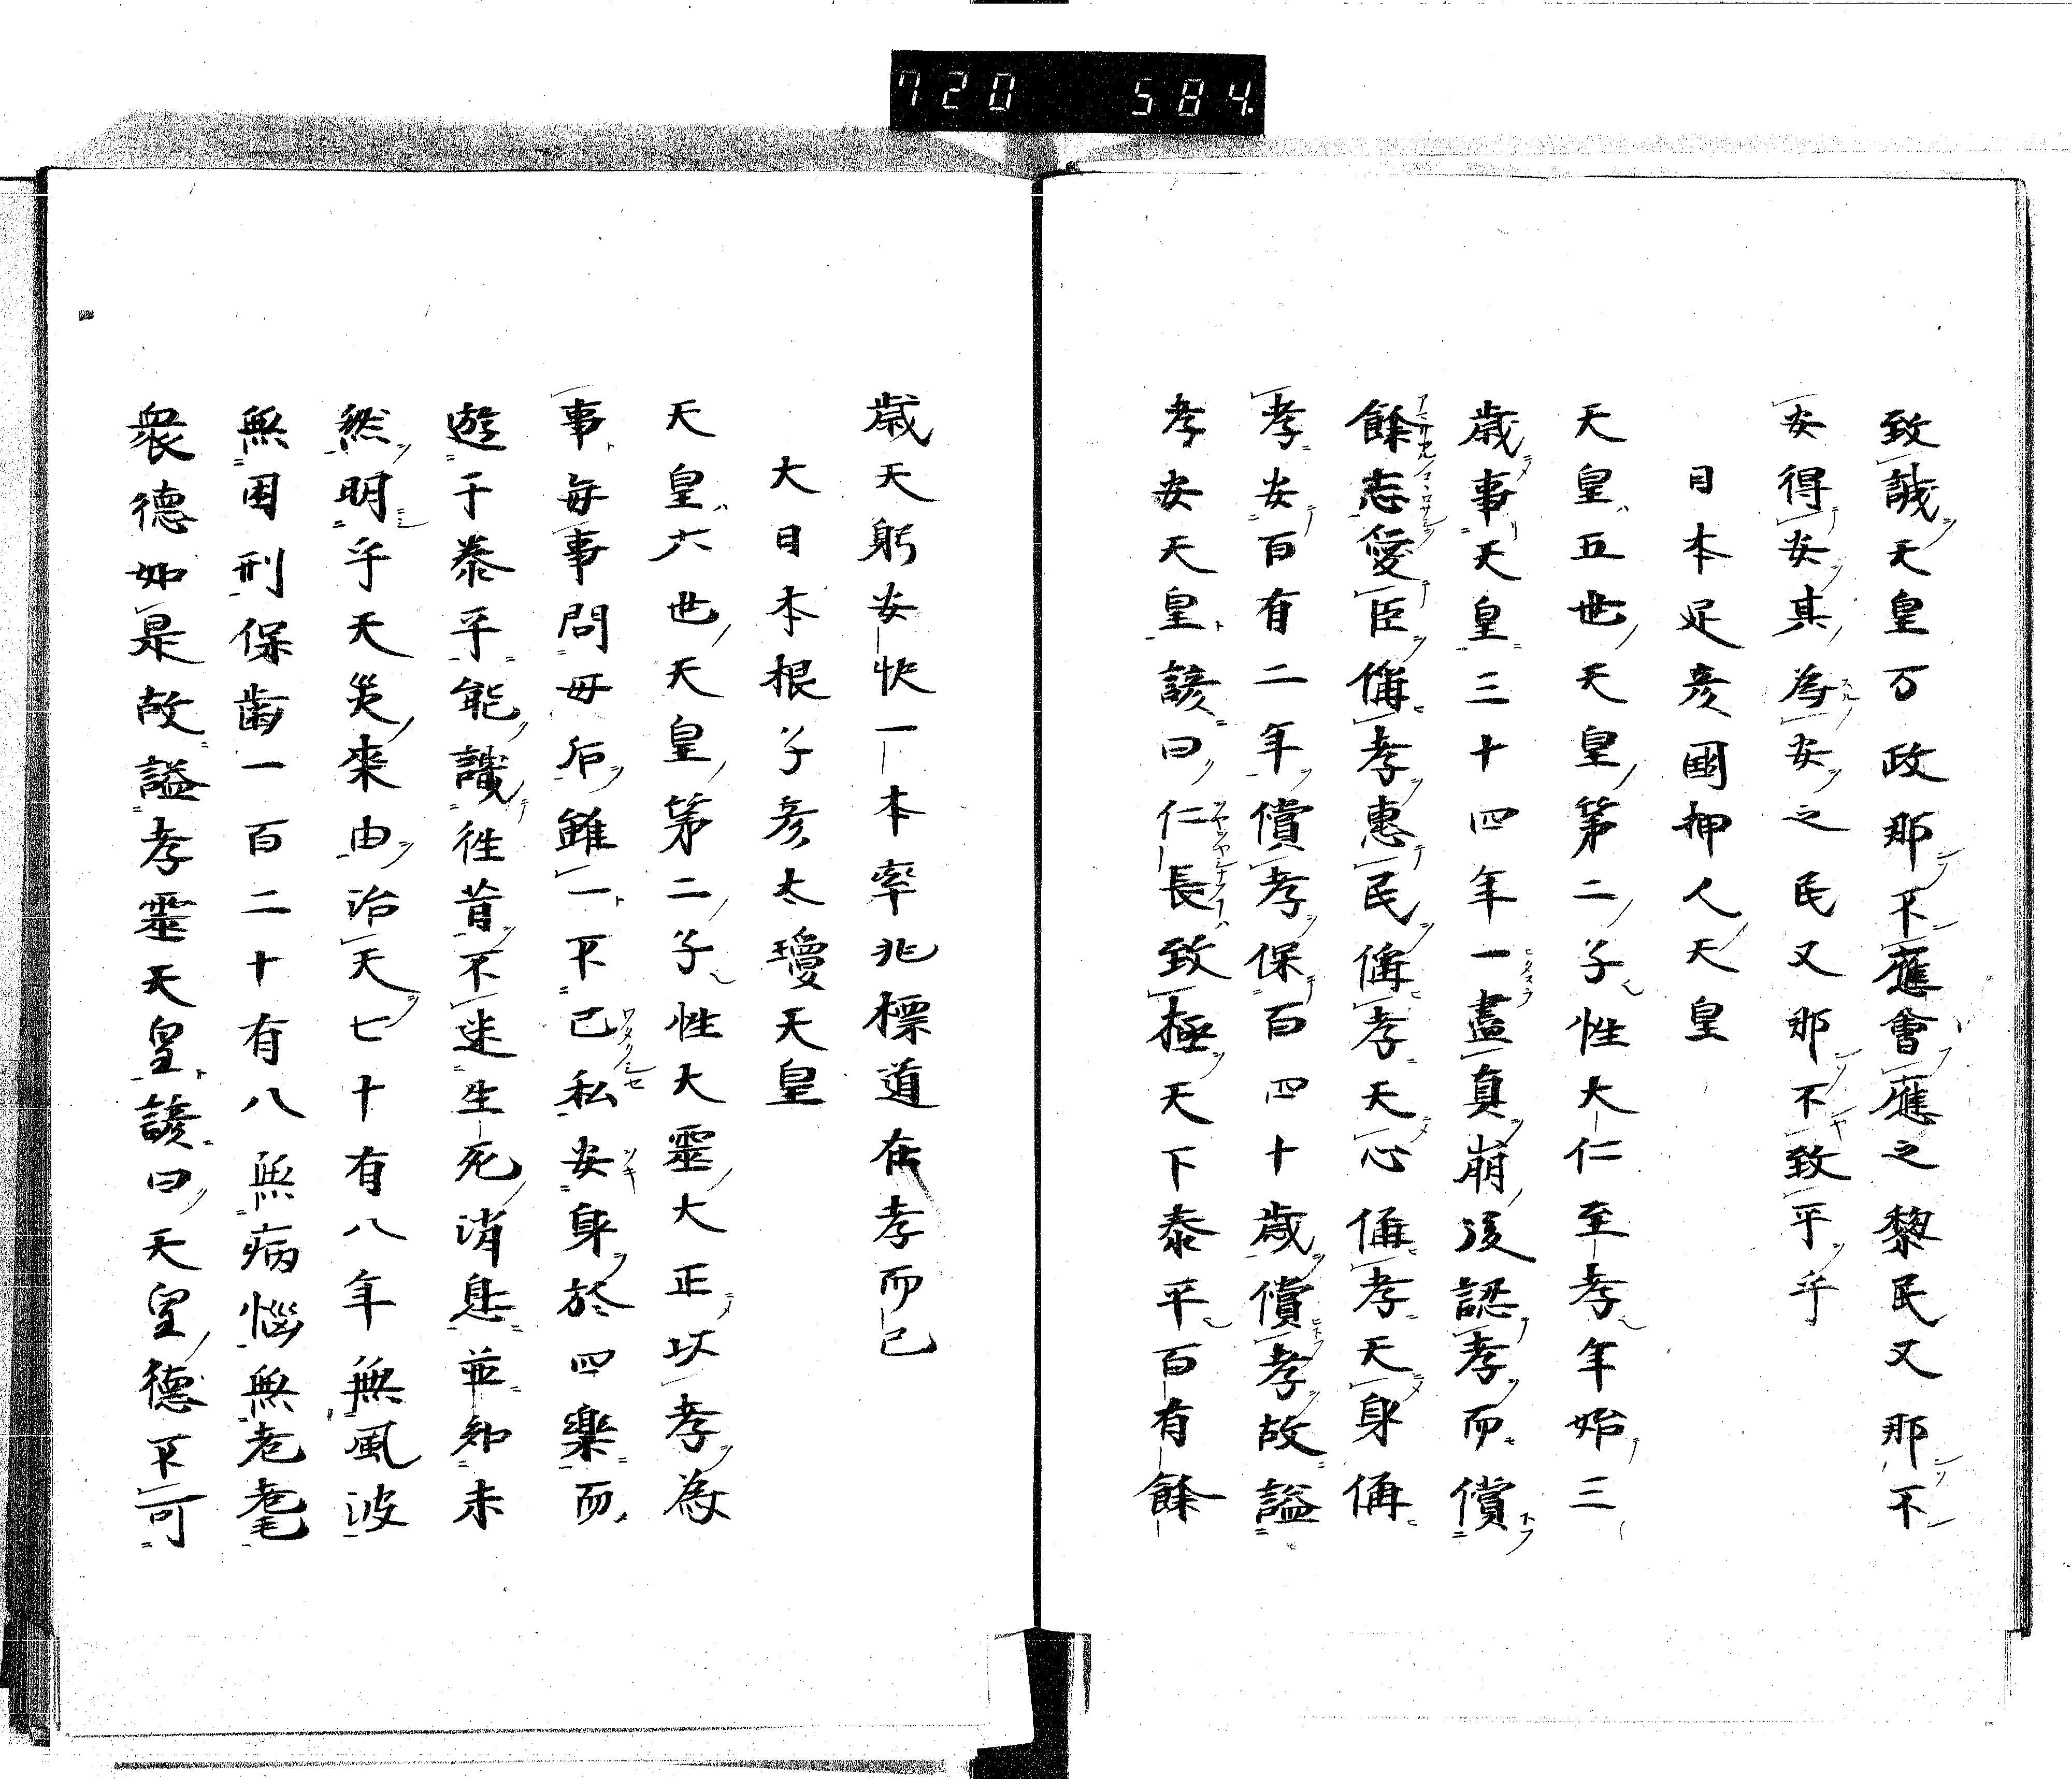 720 584
致誠天皇万政那不應會應之黎民又那不
安得安其為安之民又那不致平乎
日本足彦國押人天皇
天皇五世天皇第二子性大仁至孝年始三
歳事天皇三十四年一盡真崩後認孝而償
餘志愛臣備孝惠民備孝天心備孝天身備
孝安百有二年償孝保百四十歳償孝故謚
孝安天皇諺曰仁長致極天下泰平百有餘
歳天躬安快一本率兆標道在孝而已
大日本根子彦太瓊天皇
天皇六世天皇第二子性大靈大正以孝為
事毎事問毋后雖一不己私安身於四樂而
遊于泰平能識徃昔不迷生死消息並知未
然明乎天災來由治天七十有八年無風波
無用刑保齒一百二十有八無病惱無老耄
衆德如是故謚孝靈天皇諺曰天皇德不可